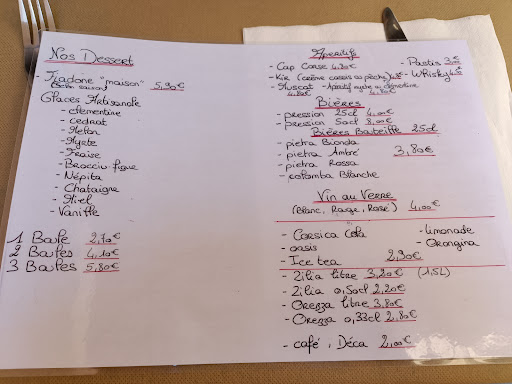 Nos Dessert
- Fiadone "maison" 5,90€
Glaces Artisanale
- clémentine
- cédrat
- Melon
- Myrte
- Fraise
- Brocciu figue
- Népita
- Chataigne
- Miel
- Vanille
1 Boule 2,70€
2 Boules 4,10€
3 Boules 5,80€
Aperitifs
- Cap Corse 4,30€ - Pastis
- Kir (crème cassis ou pêche) - Whisky
- Muscat - Apéritif myrte ou clémentine
4,80€ 4,80€
Bières
- pression 25cl 4,00€
- pression 50cl 8,00€
Bières Bouteille 25cl
- pietra Bionda
- pietra Ambré 3,80€
- pietra Rossa
- colomba Blanche
Vin au Verre
(Blanc, Rouge, Rosé) 4,00€
- Corsica Cola - limonade
- oasis - Orangina
- Ice tea 2,90€
- Zilia litre 3,20€ (1,5L)
- Zilia 0,50cl 2,20€
- Orezza litre 3,80€
- Orezza 0,33cl 2,80€
- café, Déca 2,00€